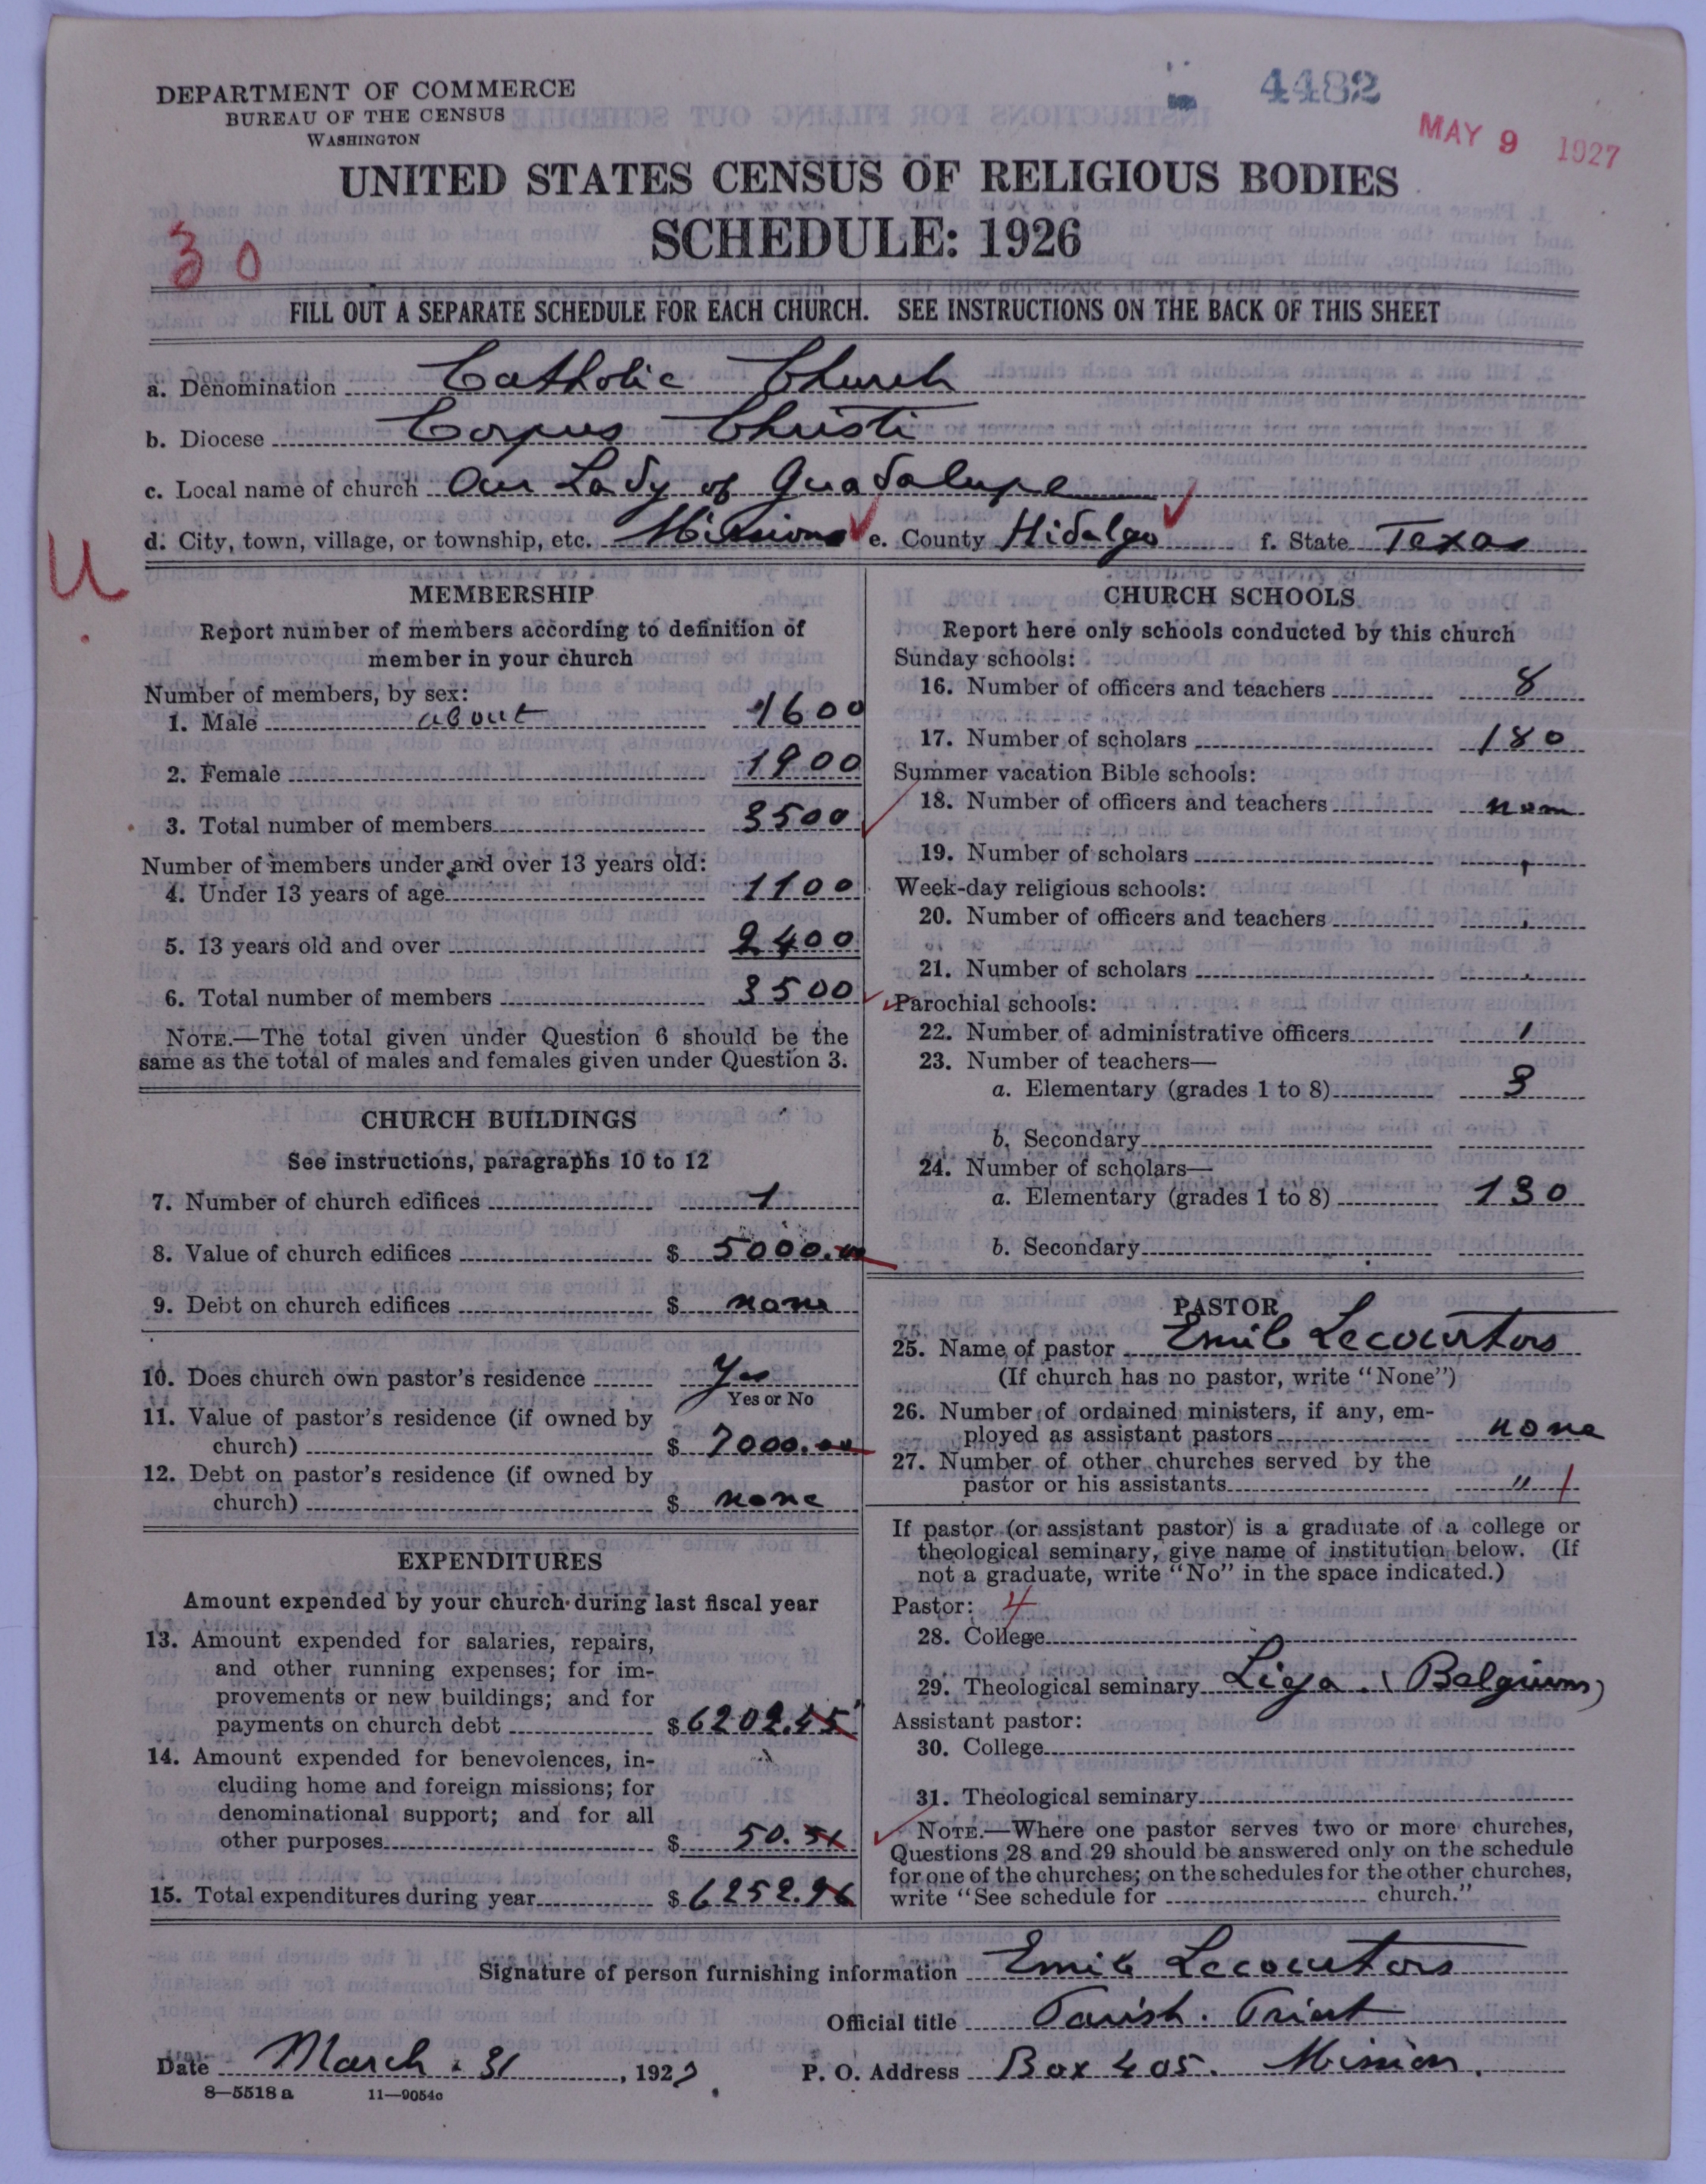 DEPARTMENT OF COMMERCE
BUREAU OF THE CENSUS
WASHINGTON
4482
MAY 9 1927
UNITED STATES CENSUS OF RELIGIOUS BODIES
SCHEDULE: 1926
30
FILL OUT A SEPARATE SCHEDULE FOR EACH CHURCH. SEE INSTRUCTIONS ON THE BACK OF THIS SHEET
a. Denomination Catholic Church
b. Diocese Corpus Christi
c. Local name of church Our Lady of Guadalupe
d. City, town, village, or township, etc. Mission e. County Hidalgo f. State Texas
U
MEMBERSHIP
Report number of members according to definition of
member in your church
Number of members, by sex:
1. Male about 1600
2. Female 1900
3. Total number of members 3500
Number of members under and over 13 years old:
4. Under 13 years of age 1100
5. 13 years old and over 2400
6. Total number of members 3500
NOTE.—The total given under Question 6 should be the
same as the total of males and females given under Question 3.
CHURCH BUILDINGS
See instructions, paragraphs 10 to 12
7. Number of church edifices 1
8. Value of church edifices $ 5000.00
9. Debt on church edifices $ none
10. Does church own pastor's residence Yes
Yes or No
11. Value of pastor's residence (if owned by
church) $ 7000.00
12. Debt on pastor's residence (if owned by
church) $ none
EXPENDITURES
Amount expended by your church during last fiscal year
13. Amount expended for salaries, repairs,
and other running expenses; for im-
provements or new buildings; and for
payments on church debt $ 6202.45
14. Amount expended for benevolences, in-
cluding home and foreign missions; for
denominational support; and for all
other purposes $ 50.51
15. Total expenditures during year $ 6252.96
CHURCH SCHOOLS
Report here only schools conducted by this church
Sunday schools:
16. Number of officers and teachers 8
17. Number of scholars 180
Summer vacation Bible schools:
18. Number of officers and teachers none
19. Number of scholars
Week-day religious schools:
20. Number of officers and teachers
21. Number of scholars
Parochial schools:
22. Number of administrative officers 1
23. Number of teachers—
a. Elementary (grades 1 to 8) 3
b. Secondary
24. Number of scholars—
a. Elementary (grades 1 to 8) 130
b. Secondary
PASTOR
25. Name of pastor Emile Lecourtois
(If church has no pastor, write "None")
26. Number of ordained ministers, if any, em-
ployed as assistant pastors none
27. Number of other churches served by the
pastor or his assistants " 1
If pastor (or assistant pastor) is a graduate of a college or
theological seminary, give name of institution below. (If
not a graduate, write "No" in the space indicated.)
Pastor: 4
28. College
29. Theological seminary (Belgium)
Assistant pastor:
30. College
31. Theological seminary
NOTE.—Where one pastor serves two or more churches,
Questions 28 and 29 should be answered only on the schedule
for one of the churches; on the schedules for the other churches,
write "See schedule for church."
Signature of person furnishing information Emile Lecourtois
Official title Parish. Priest
Date March. 31, 1927 P. O. Address Box 405. Mission.
8—5518 a 11—9054c